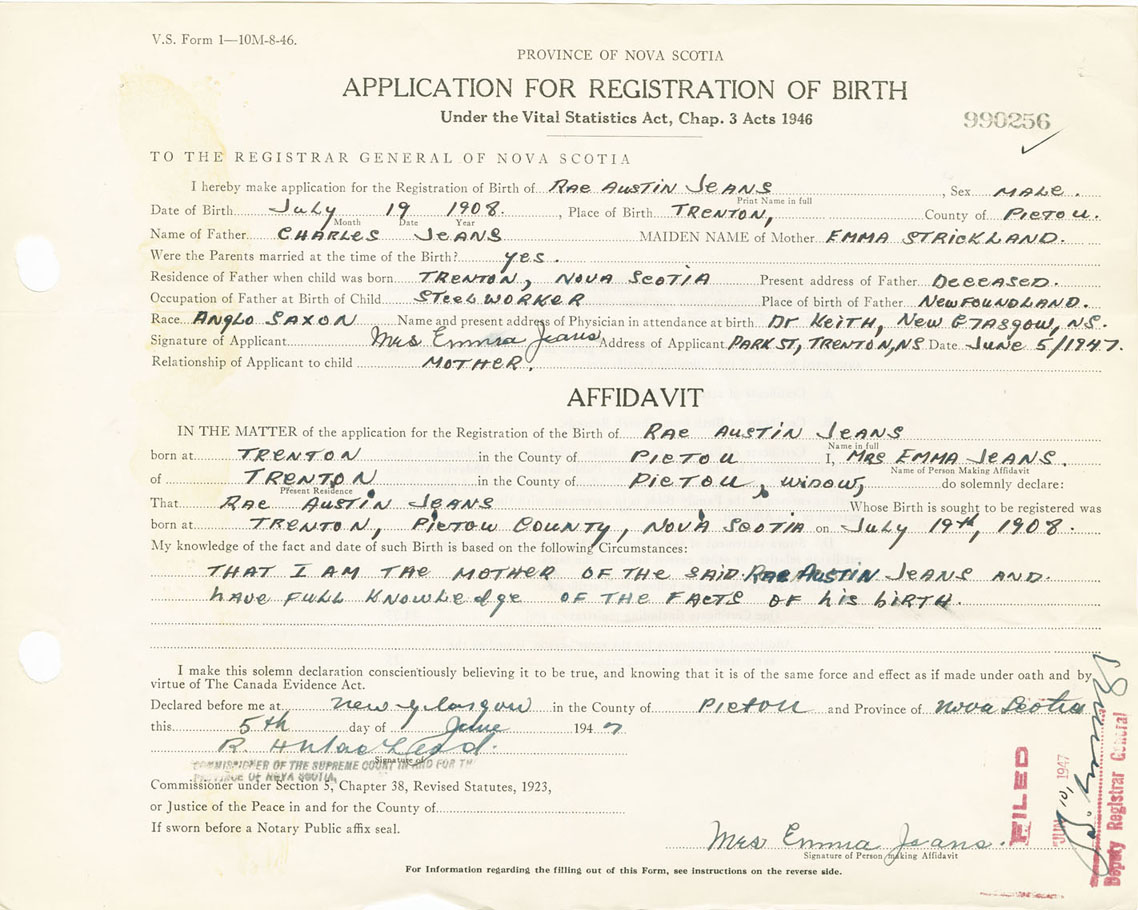 V.S. Form 1—10M-8-46.
PROVINCE OF NOVA SCOTIA
APPLICATION FOR REGISTRATION OF BIRTH
Under the Vital Statistics Act, Chap. 3 Acts 1946
990256
TO THE REGISTRAR GENERAL OF NOVA SCOTIA
I hereby make application for the Registration of Birth of RAE AUSTIN JEANS, Sex MALE.
Print Name in full
Date of Birth July 19 1908., Place of Birth TRENTON, County of PICTOU.
Month Date Year
Name of Father CHARLES JEANS MAIDEN NAME of Mother EMMA STRICKLAND.
Were the Parents married at the time of the Birth? yes.
Residence of Father when child was born TRENTON, NOVA SCOTIA Present address of Father DECEASED.
Occupation of Father at Birth of Child STEELWORKER Place of birth of Father NEWFOUNDLAND.
Race ANGLO SAXON Name and present address of Physician in attendance at birth DR KEITH, NEW GLASGOW, NS.
Signature of Applicant Mrs Emma Jeans Address of Applicant PARK ST, TRENTON, NS Date JUNE 5/1947.
Relationship of Applicant to child MOTHER.
AFFIDAVIT
IN THE MATTER of the application for the Registration of the Birth of RAE AUSTIN JEANS
Name in full
born at TRENTON in the County of PICTOU I, MRS EMMA JEANS.
Name of Person Making Affidavit
of TRENTON in the County of PICTOU, WIDOW, do solemnly declare:
Present Residence
That RAE AUSTIN JEANS Whose Birth is sought to be registered was
born at TRENTON, PICTOU COUNTY, NOVA SCOTIA on July 19th, 1908.
My knowledge of the fact and date of such Birth is based on the following Circumstances:
THAT I AM THE MOTHER OF THE SAID RAE AUSTIN JEANS AND
have FULL KNOWLEdge OF THE FACTS OF his biRTH.
I make this solemn declaration conscientiously believing it to be true, and knowing that it is of the same force and effect as if made under oath and by
virtue of The Canada Evidence Act.
Declared before me at New Glasgow in the County of Pictou and Province of Nova Scotia
this 5th day of June 1947
Signature of
COMMISSIONER OF THE SUPREME COURT IN AND FOR TH
PROVINCE OF NOVA SCOTIA,
Commissioner under Section 5, Chapter 38, Revised Statutes, 1923,
or Justice of the Peace in and for the County of
If sworn before a Notary Public affix seal.
Mrs Emma Jeans.
Signature of Person making Affidavit
For Information regarding the filling out of this Form, see instructions on the reverse side.
FILED
JUN 10, 1947
Deputy Registrar General